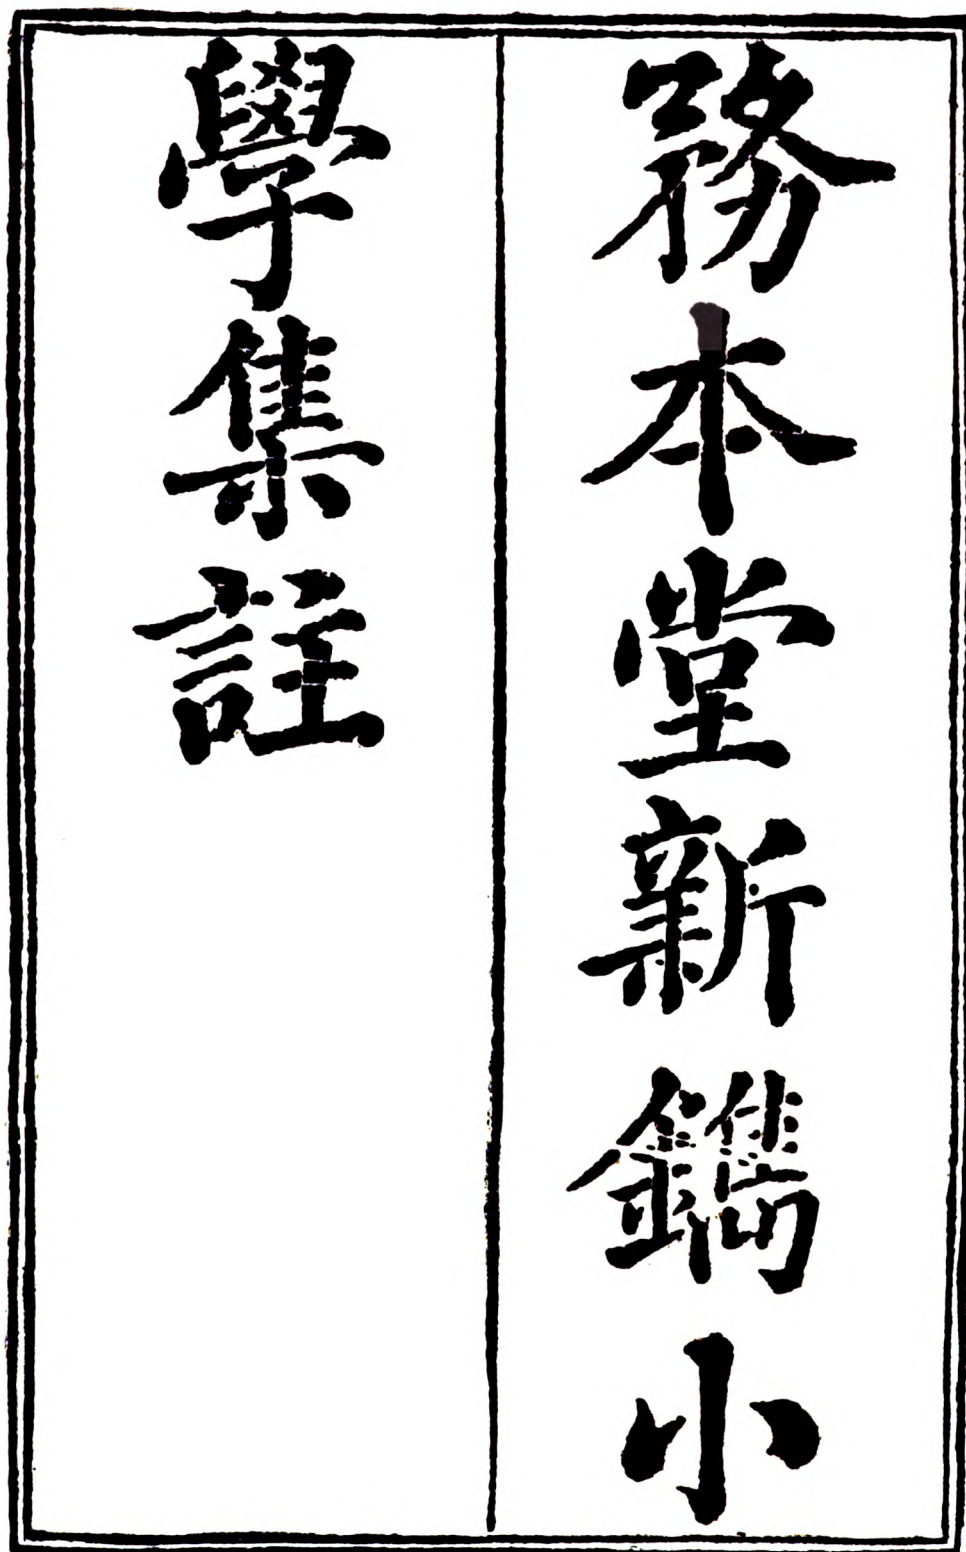 務本堂新鐫小
學集註